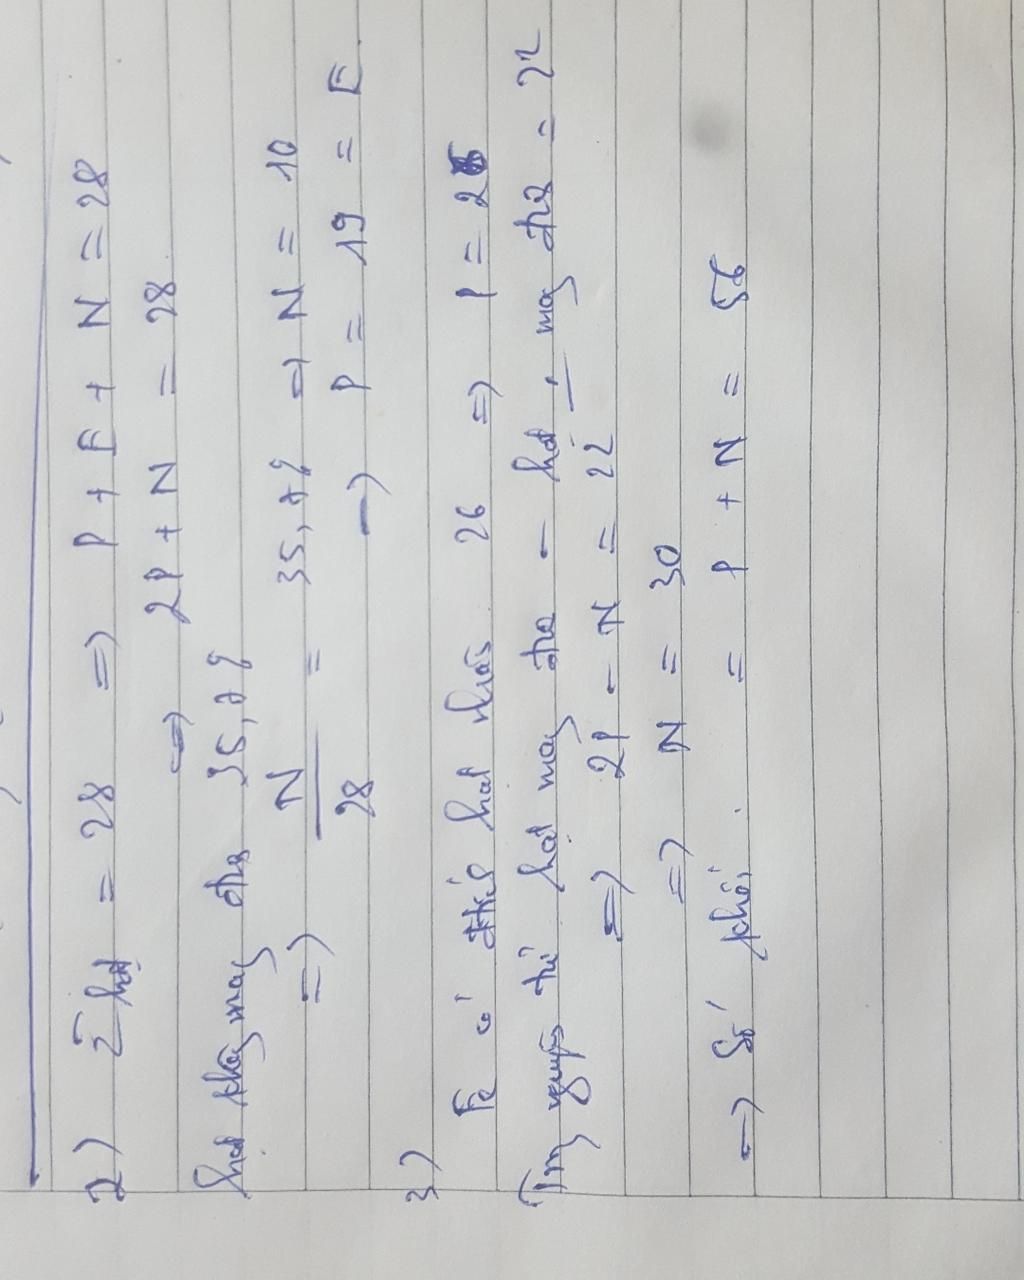 2) Σ hạt = 28 => P + E + N = 28
=> 2P + N = 28
hạt không mang điện 35,7%
=> N/28 = 35,7% => N = 10
=> P = 19 = E
3)
Fe có điện hạt nhân 26 => P = 26
Trong nguyên tử hạt mang điện - hạt không mang điện = 22
=> 2P - N = 22
=> N = 30
=> Số khối = P + N = 56